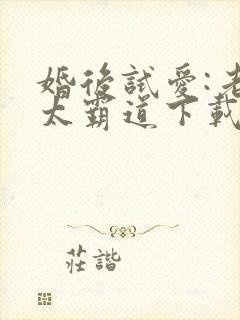 婚後試愛:老
太霸道下載
莊諧